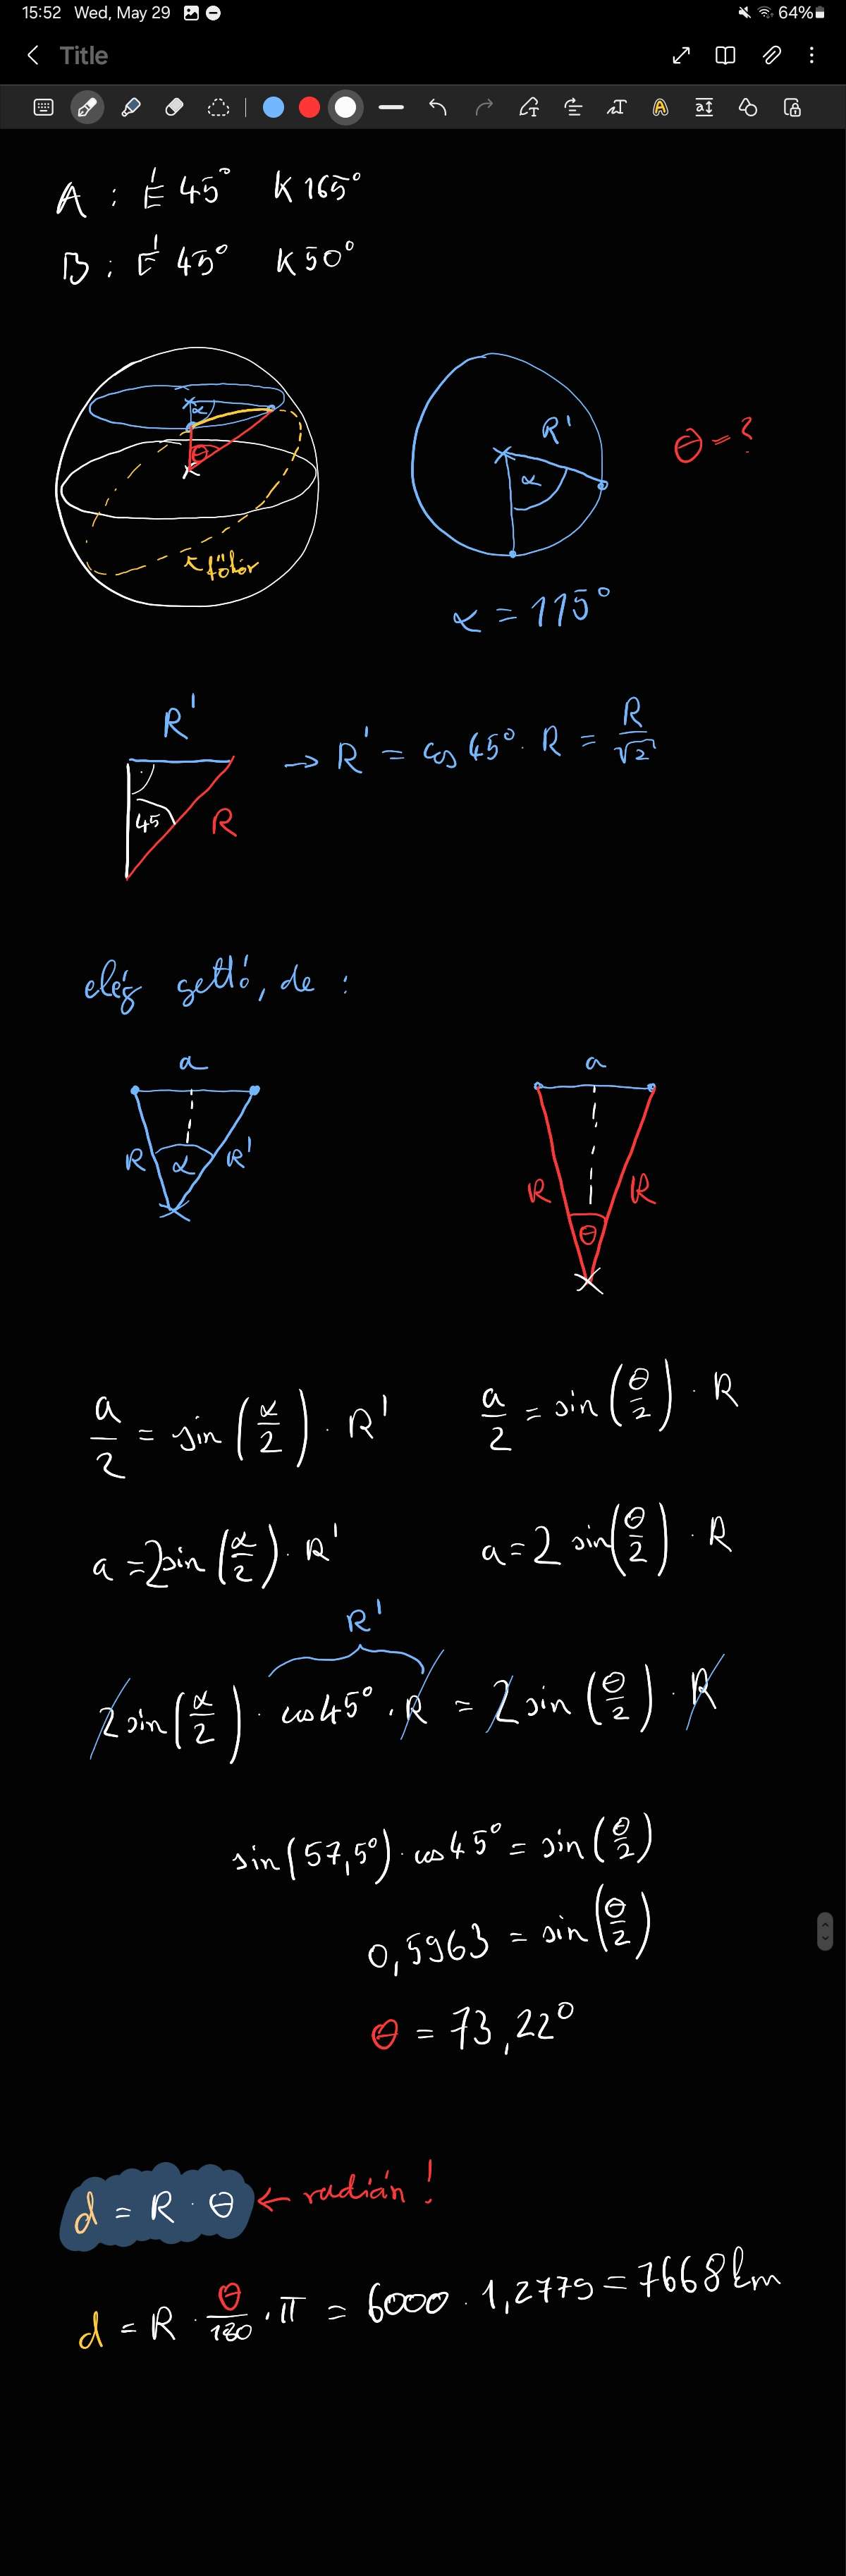 15:52 Wed, May 29 64%
Title
A : É 45° K 165°
B : É 45° K 50°
α
θ
főkör
R'
α
θ = ?
α = 115°
R'
45
R
→ R' = cos 45° · R = R/√2
elég gettó, de :
a
R α R'
a
R R
θ
a/2 = sin (α/2) · R'
a/2 = sin (θ/2) · R
a = 2 sin (α/2) · R'
a = 2 sin (θ/2) · R
R'
2 sin (α/2) · cos 45° · R = 2 sin (θ/2) · R
sin (57,5°) · cos 45° = sin (θ/2)
0,5963 = sin (θ/2)
θ = 73,22°
d = R · θ ← radián !
d = R · θ/180 · π = 6000 · 1,2779 = 7668 km